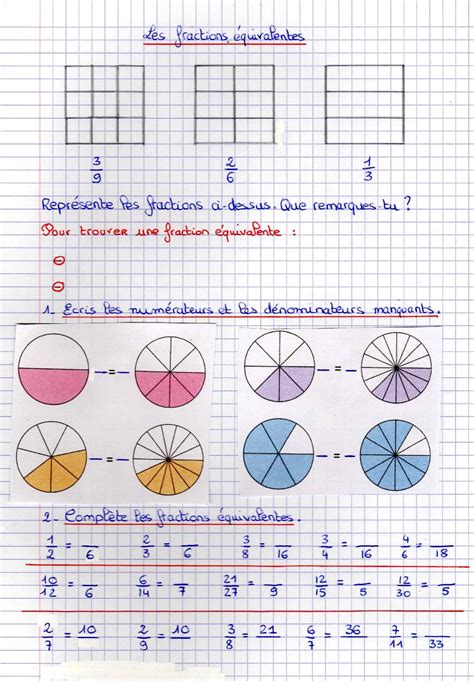 Les fractions équivalentes
3/9 2/6 1/3
Représente les fractions ci-dessus. Que remarques-tu ?
Pour trouver une fraction équivalente :
1_ Ecris les numérateurs et les dénominateurs manquants.
— = — — = —
— = — — = —
2_ Complète les fractions équivalentes.
1/2 = __/6 2/3 = __/6 3/8 = __/16 3/4 = __/16 4/6 = __/18
10/12 = __/6 6/14 = __/7 21/27 = __/9 12/15 = __/5 12/30 = __/5
2/7 = 10/__ 2/9 = 10/__ 3/8 = 21/__ 6/7 = 36/__ 7/11 = __/33